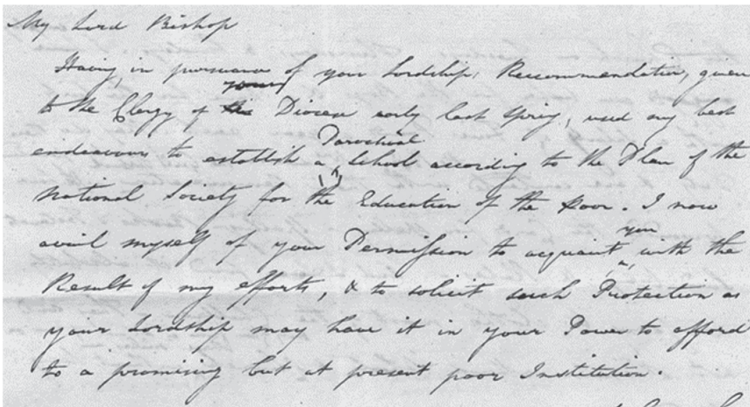 My Lord Bishop
Having, in pursuance of your Lordship's Recommendation, given
to the Clergy of your Diocese early last Spring, used my best
endeavours to establish a Parochial School according to the Plan of the
National Society for the Education of the Poor. I now
avail myself of your Permission to acquaint you with the
Result of my efforts, & to solicit such Protection as
your Lordship may have it in your Power to afford
to a promising but at present poor Institution.